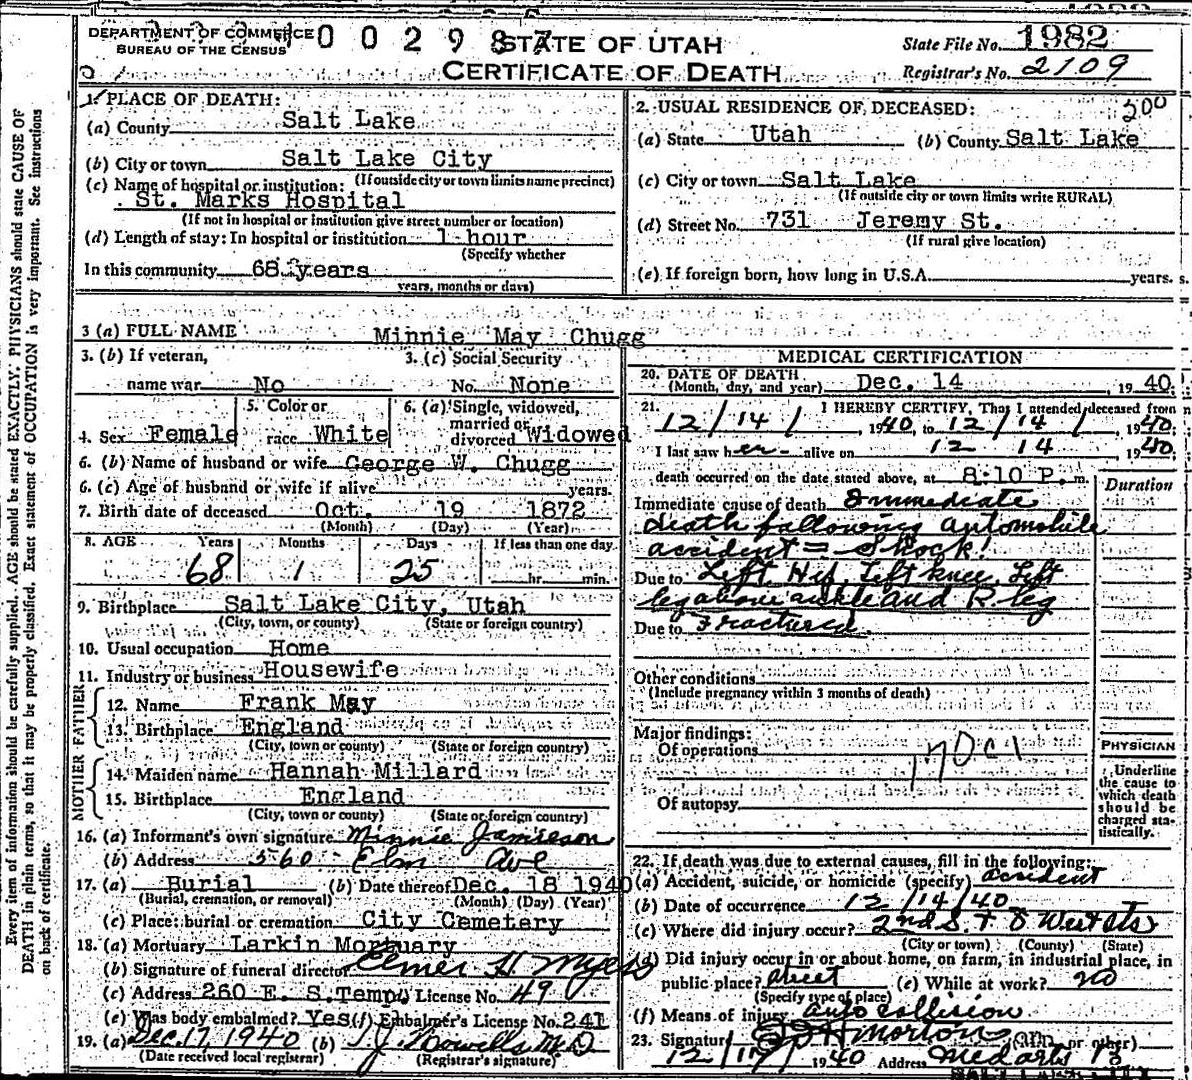 DEPARTMENT OF COMMERCE
BUREAU OF THE CENSUS
0 0 2 9 8
STATE OF UTAH
CERTIFICATE OF DEATH
State File No. 1982
Registrar's No. 2109
1. PLACE OF DEATH:
(a) County Salt Lake
(b) City or town Salt Lake City
(If outside city or town limits name precinct)
(c) Name of hospital or institution:
St. Marks Hospital
(If not in hospital or institution give street number or location)
(d) Length of stay: In hospital or institution 1 hour
(Specify whether
In this community 68 years
years, months or days)
2. USUAL RESIDENCE OF DECEASED:
(a) State Utah (b) County Salt Lake
(c) City or town Salt Lake
(If outside city or town limits write RURAL)
(d) Street No. 731 Jeremy St.
(If rural give location)
(e) If foreign born, how long in U.S.A. years.
3 (a) FULL NAME Minnie May Chugg
3. (b) If veteran,
name war No
3. (c) Social Security
No. None
4. Sex Female
5. Color or
race White
6. (a) Single, widowed,
married or
divorced Widowed
6. (b) Name of husband or wife George W. Chugg
6. (c) Age of husband or wife if alive years.
7. Birth date of deceased Oct. 19 1872
(Month) (Day) (Year)
8. AGE Years Months Days If less than one day
68 1 25 hr. min.
9. Birthplace Salt Lake City, Utah
(City, town, or county) (State or foreign country)
10. Usual occupation Home
11. Industry or business Housewife
FATHER
12. Name Frank May
13. Birthplace England
(City, town or county) (State or foreign country)
MOTHER
14. Maiden name Hannah Millard
15. Birthplace England
(City, town or county) (State or foreign country)
16. (a) Informant's own signature Minnie Jamieson
(b) Address 560 Elm Ave
17. (a) Burial (b) Date thereof Dec. 18 1940
(Burial, cremation, or removal) (Month) (Day) (Year)
(c) Place: burial or cremation City Cemetery
18. (a) Mortuary Larkin Mortuary
(b) Signature of funeral director Elmer H. Myers
(c) Address 260 E. S.Temp. License No. 49
(e) Was body embalmed? Yes (f) Embalmer's License No. 241
19. (a) Dec. 17 1940 (b) T. J. Howells M.D.
(Date received local registrar) (Registrar's signature)
MEDICAL CERTIFICATION
20. DATE OF DEATH
(Month, day, and year) Dec. 14, 1940.
21. I HEREBY CERTIFY, That I attended deceased from
12/14/, 1940, to 12/14/, 1940.
I last saw her alive on 12 14 1940.
death occurred on the date stated above, at 8:10 P. m.
Duration
Immediate cause of death Immediate
death following automobile
accident = Shock!
Due to Left Hip, Left knee, Left
leg above ankle and R leg
Due to Fractured.
Other conditions
(Include pregnancy within 3 months of death)
Major findings:
Of operations
Of autopsy
PHYSICIAN
Underline
the cause to
which death
should be
charged sta-
tistically.
22. If death was due to external causes, fill in the following:
(a) Accident, suicide, or homicide (specify) accident
(b) Date of occurrence 12/14/40
(c) Where did injury occur? 2nd S. & 8 West sts
(City or town) (County) (State)
(d) Did injury occur in or about home, on farm, in industrial place, in
public place? street (e) While at work? no
(Specify type of place)
(f) Means of injury auto collision
23. Signature Morton (M.D. or other)
1940 Address Med arts B
Every item of information should be carefully supplied. AGE should be stated EXACTLY. PHYSICIANS should state CAUSE OF
DEATH in plain terms, so that it may be properly classified. Exact statement of OCCUPATION is very important. See instructions
on back of certificate.